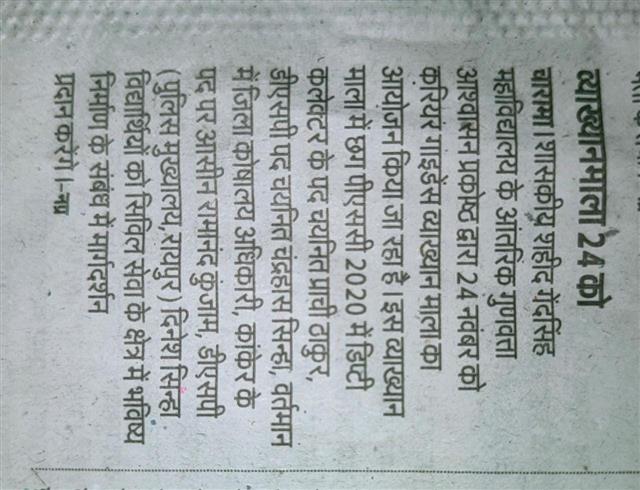 व्याख्यानमाला 24 को
चारामा। शासकीय शहीद गेंदसिंह
महाविद्यालय के आंतरिक गुणवत्ता
आश्वासन प्रकोष्ठ द्वारा 24 नवंबर को
करियर गाइडेंस व्याख्यान माला का
आयोजन किया जा रहा है। इस व्याख्यान
माला में छग पीएससी 2020 में डिप्टी
कलेक्टर के पद चयनित प्राची ठाकुर,
डीएसपी पद चयनित चंद्रहास सिन्हा, वर्तमान
में जिला कोषालय अधिकारी, कांकेर के
पद पर आसीन रामानंद कुंजाम, डीएसपी
(पुलिस मुख्यालय,रायपुर) दिनेश सिन्हा
विद्यार्थियों को सिविल सेवा के क्षेत्र में भविष्य
निर्माण के संबंध में मार्गदर्शन
प्रदान करेंगे।-नप्र